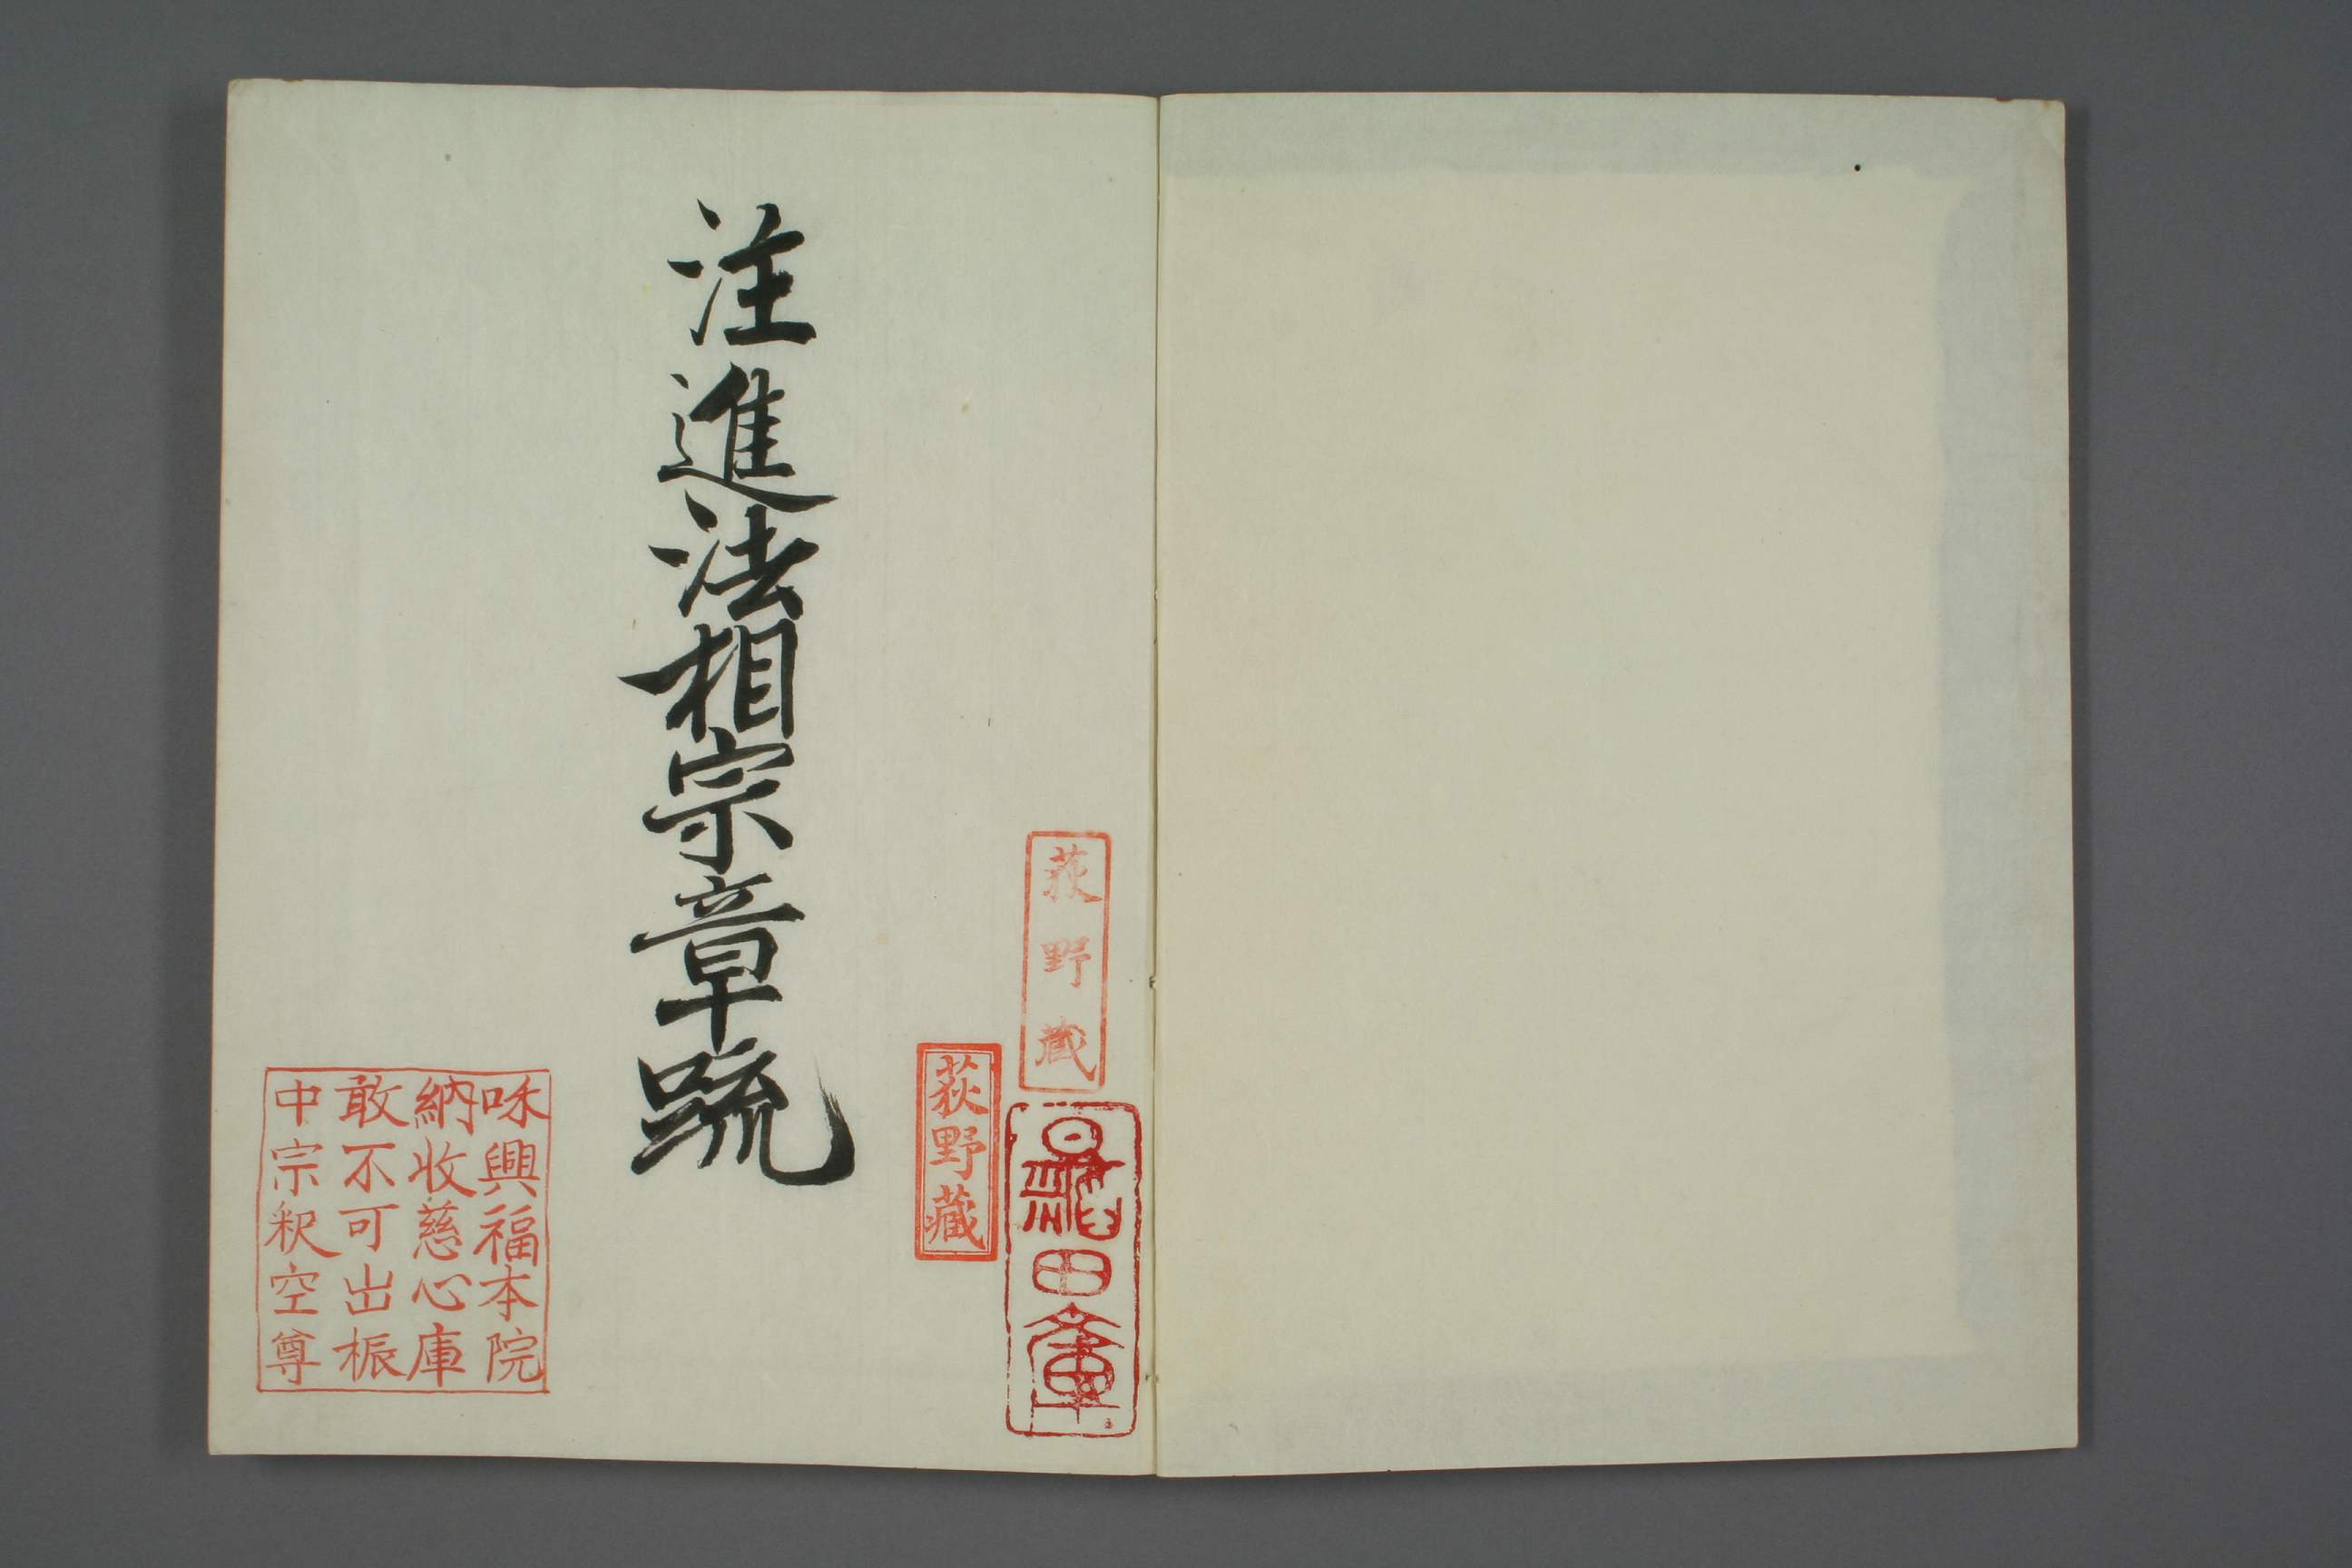 荻野蔵
田章
荻野藏
注進法相宗章疏
興福本院
納收慈心庫
敢不可出桭
中宗釈空尊